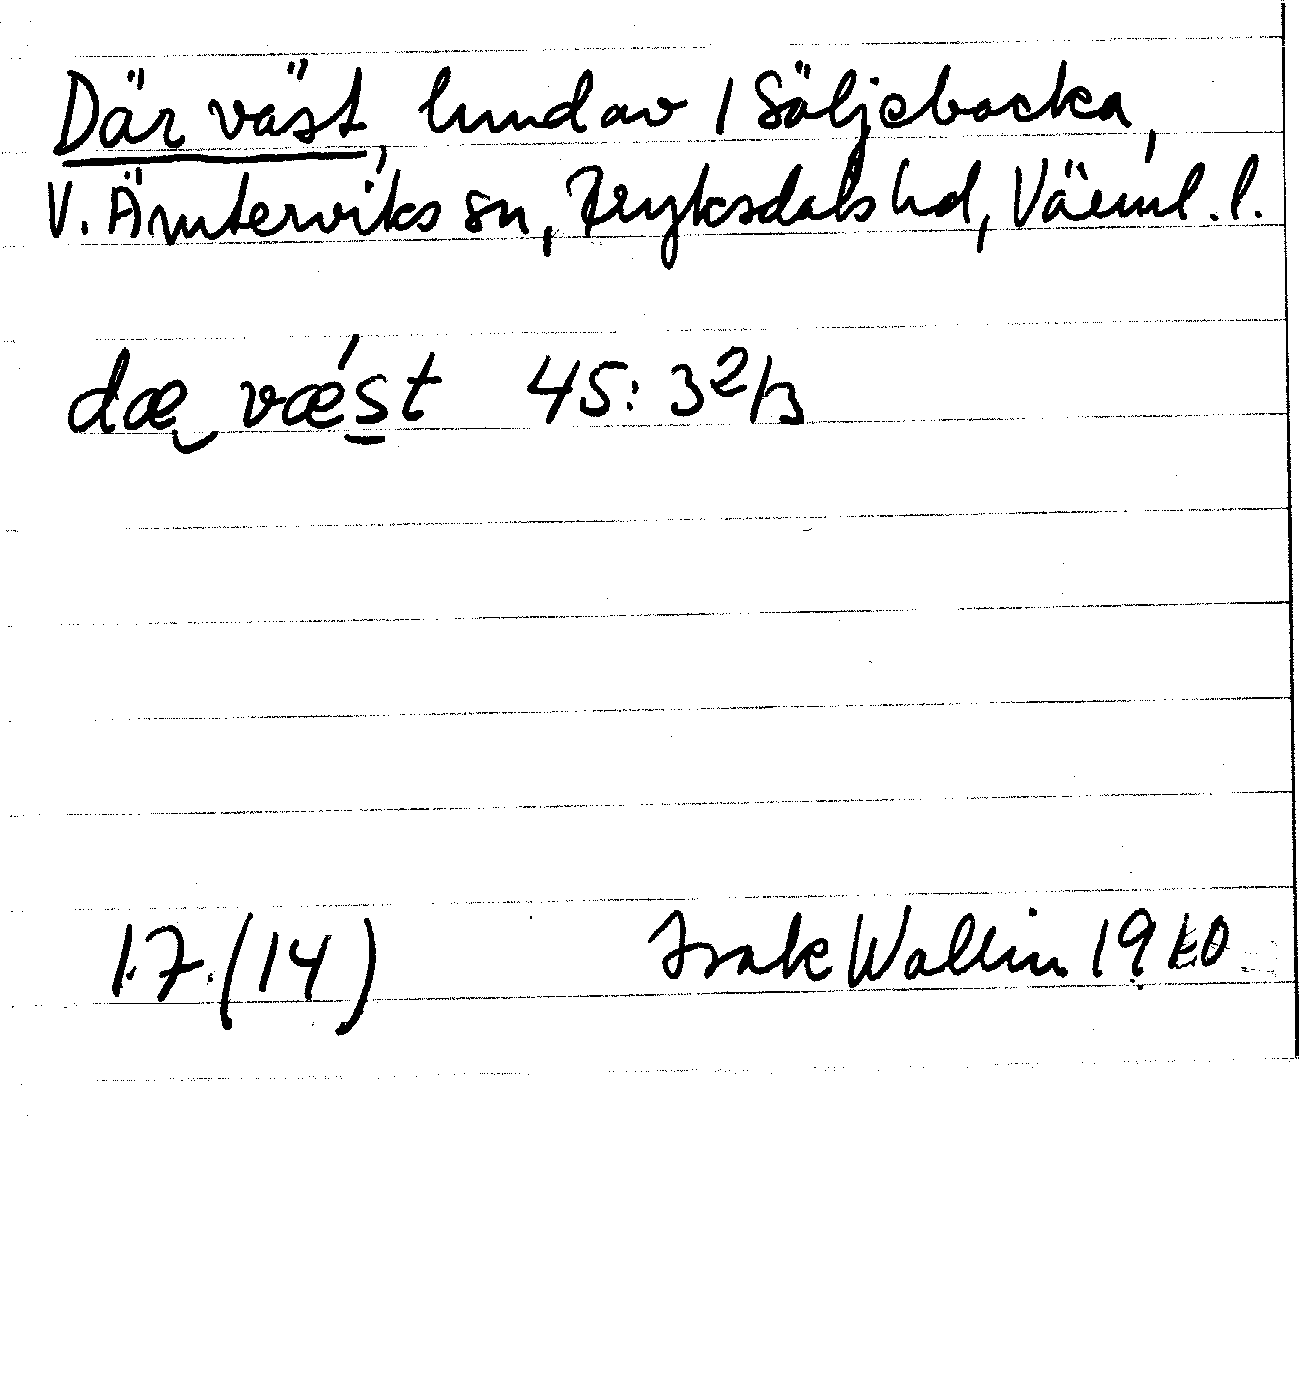 Där väst, hmd av 1 Säljebacka,
V. Ämterviks sn, Fryksdals hd, Värml. l.
dæ vǽst 45: 3 2/3
17. (14) Isak Wallin 1910